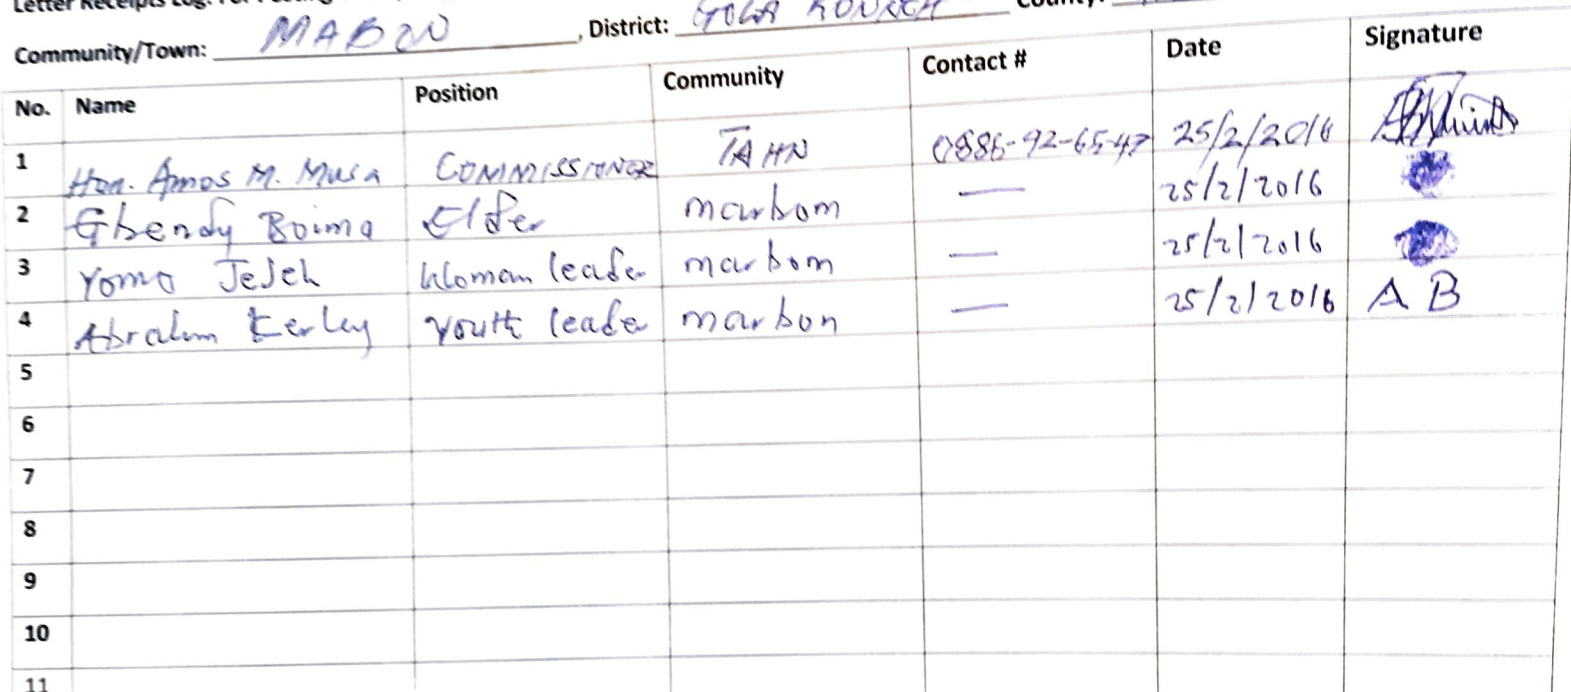 Letter Receipts Log: For
Community/Town: MABON, District: GOLA KONNEH County:
No. Name Position Community Contact # Date Signature
1 Hon. Amos M. Musa COMMISSIONER TAHN 0886-92-65-47 25/2/2016
2 Gbendy Boima Elder marbom 25/2/2016
3 Yomo Jejeh Woman leader marbom 25/2/2016
4 Abraham Kerley Youth leader marbon 25/2/2016 A B
5
6
7
8
9
10
11